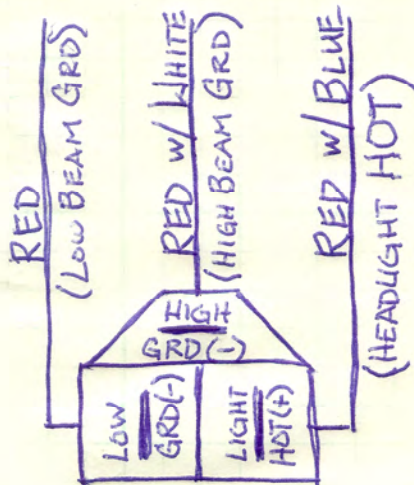 RED
(LOW BEAM GRD)
RED w/ WHITE
(HIGH BEAM GRD)
RED w/ BLUE
(HEADLIGHT HOT)
HIGH
GRD(-)
LOW
GRD(-)
LIGHT
HOT(+)